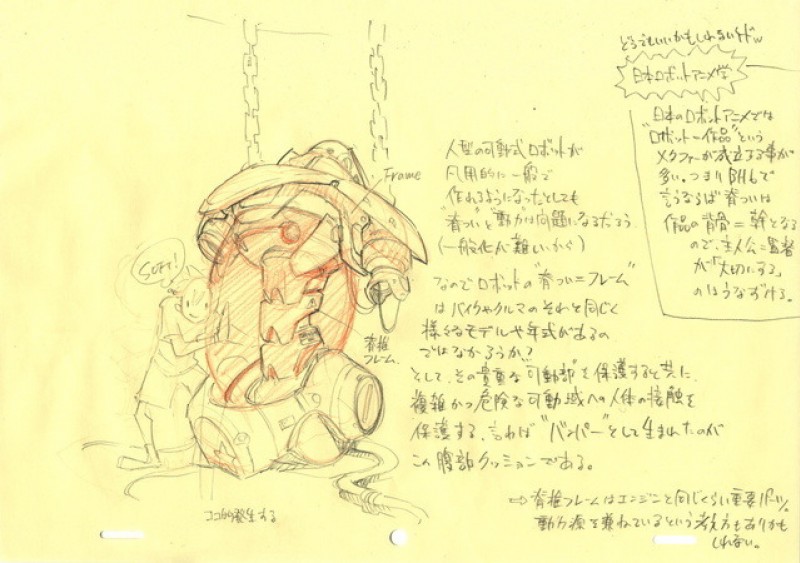 どうでもいいかもしれないけどw
日本ロボットアニメ学
日本のロボットアニメでは
"ロボット=作品"という
メタファーが成立する事が
多い。つまりBH6で
言うならば脊ついは
作品の背骨=幹となる
ので、主人公=監督
が「大切にする」
のはうなずける。
Frame
人型の可動式ロボットが
汎用的に一般で
作れるようになったとしても
"脊つい"と"動力"は問題になるだろう
(一般化が難しいから)
なのでロボットの"脊つい=フレーム"
はバイクやクルマのそれと同じく
様々なモデルや年式があるの
ではなかろうか?
そして、その貴重な"可動部"を保護すると共に
複雑かつ危険な可動域への人体の接触を
保護する、言わば"バンパー"として生まれたのが
この腹部クッションである。
SOFT!
脊椎
フレーム
発生する
⇨脊椎フレームはエンジンと同じくらい重要パーツ。
動力源を兼ねているという考え方もありかも
しれない。